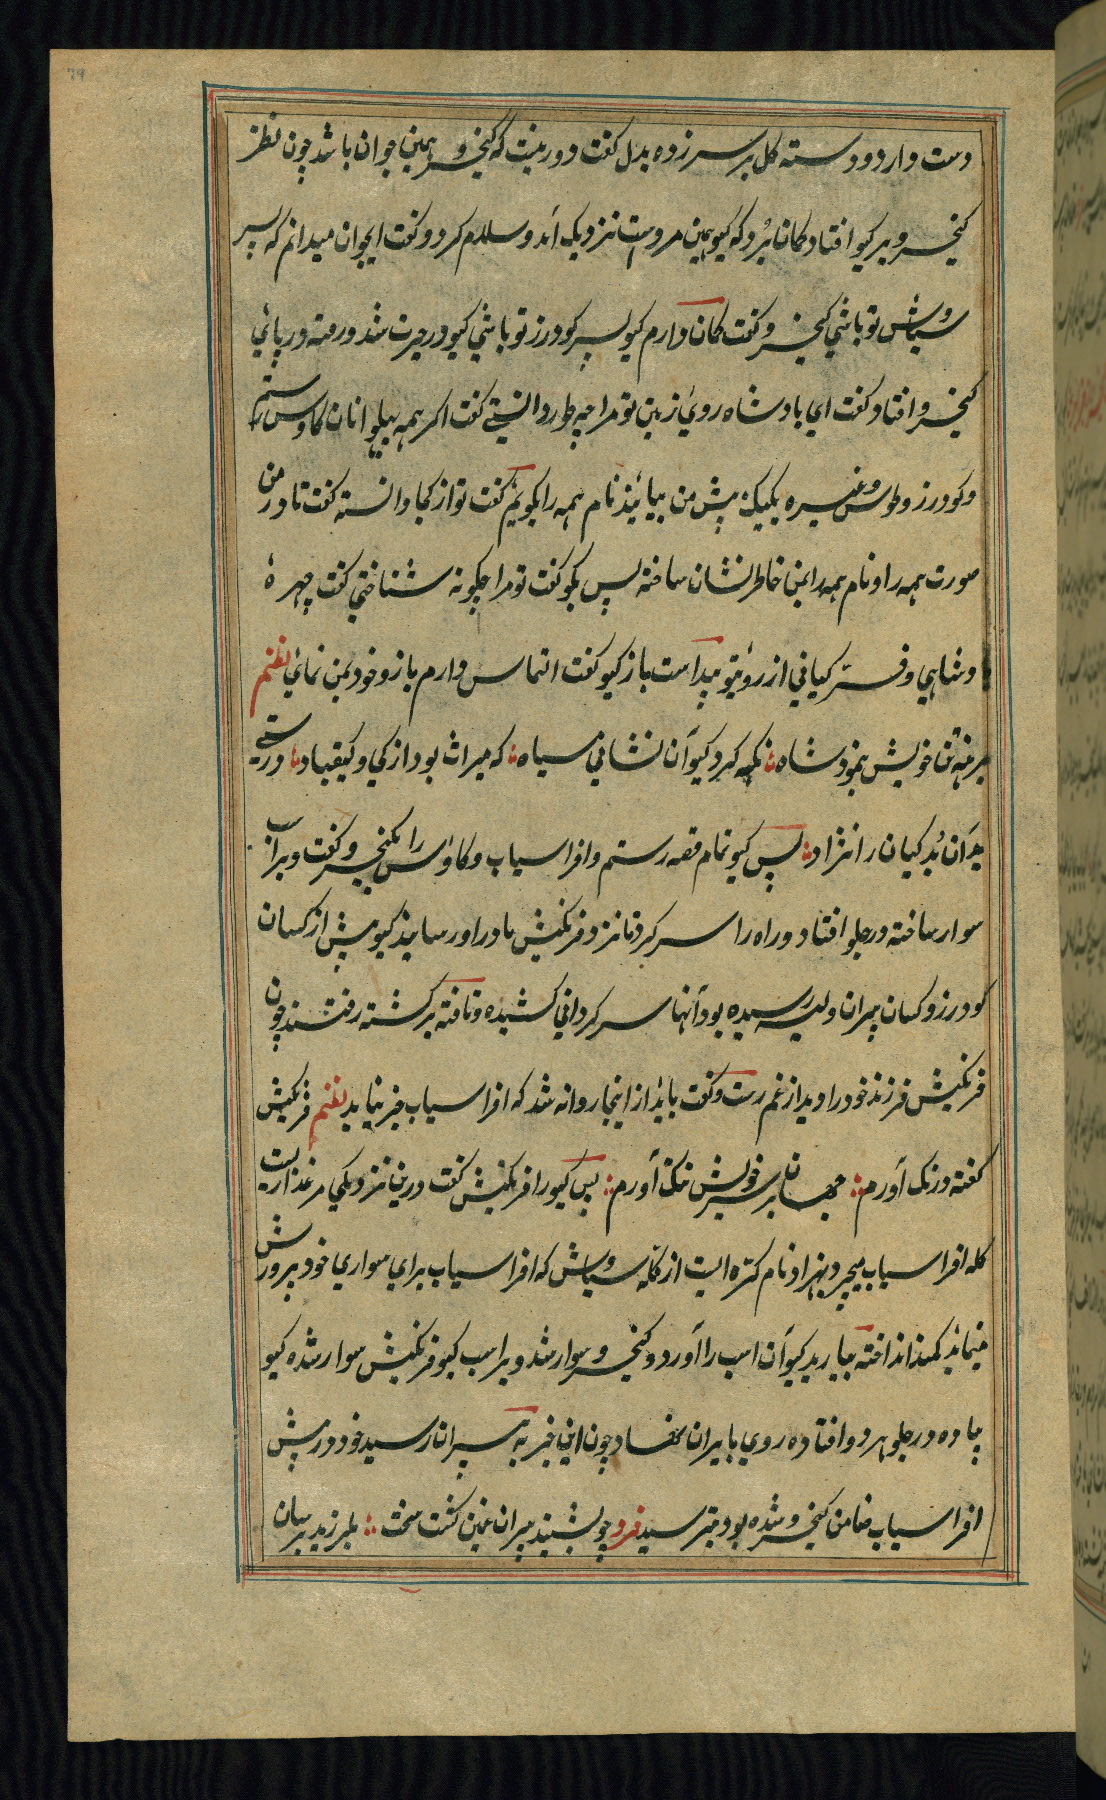 دست دارد و دسته گل بر سر زده بدل گفت دور نیست که کیخسرو همین جوان باشد چون نظر
کیخسرو بر کیو افتاد گمان برد که کیو همین مرد است نزدیک آمد و سلام کرد و گفت ایجوان میدانم که پسر
سیاوش تو باشی کیخسرو گفت گمان دارم کیو پسر کودرز تو باشی کیو در حیرت شد و رفته در پای
کیخسرو افتاد و گفت ای بادشاه روی زمین تو مرا چه طور دانستے گفت اکر همه پهلوانان کاوس رستم
و کودرز و طوس و غیره یکیک پیش من بیایند نام همه را بگویم گفت تو از کجا دانسته گفت مادر من
صورت همه را و نام همه را بمن خاطر نشان ساخته پس بگو گفت تو مرا چگونه شناختی گفت چهره
و شاهی و فر کیانی از روی تو پیداست باز کیو گفت التماس دارم بازو خود بمن نمای نظم
برهنه تن خویش بنمود شاه نگه کرد کیو آن نشانی سیاه که میراث بود از کی و کیقباد درستے
بدان بد کیان را نژاد پس کیو تمام قصه رستم و افراسیاب و کاوس را بکیخسرو گفت و بر اسپ
سوار ساخته در جلو افتاد و راه را سر کرد تا نزد فرنکیش مادر او رسانید کیو پیش از کسان
کودرز و کسان پیران ویسه رسیده بود آنها سرکردانی کشیده و نافته برکشته رفتند چون
فرنکیش فرزند خود را دید از غم رست و گفت باید از اینجا روانه شد که افراسیاب خبر نیابد نظم فرنکیش
گفته درنک آورم جهان بر سر خویش تنک آورم پس کیو را فرنکیش گفت درین نزدیکی مرغزاریست
کله افراسیاب میچرد بهزاد نام کره ایست از کله سیاوش که افراسیاب برای سواری خود پرورش
مینماید کمند انداخته بیارید کیو آن اسب را آورد و کیخسرو سوار شد و بر اسب کیو فرنکیش سوار شده کیو
پیاده در جلو هر دو افتاده روی بایران نهاد چون این خبر به پیران رسید خود در پیش
افراسیاب ضامن کیخسرو شده بود بترسید فرد چو بشنید پیران غمین کشت سخت بلرزید بر سان